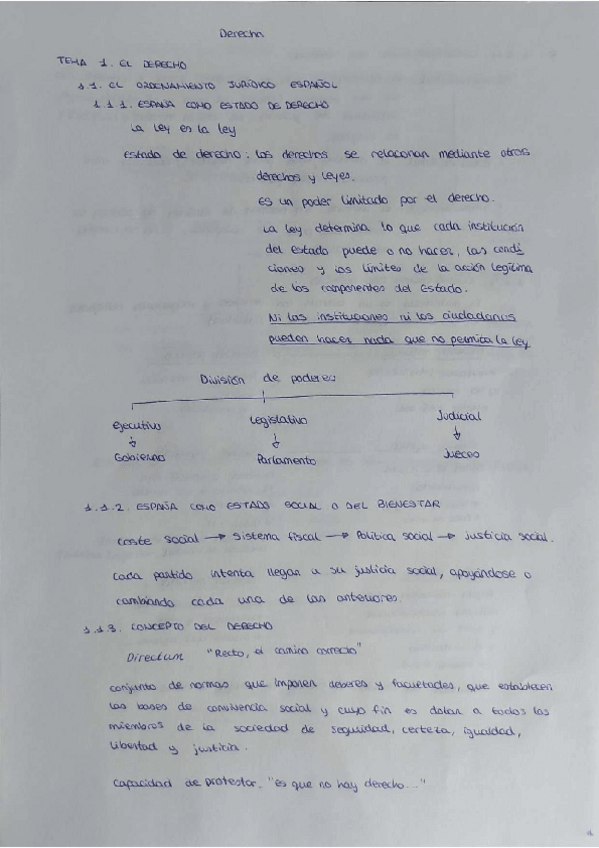 Derecho
TEMA 1. EL DERECHO
1.1. EL ORDENAMIENTO JURÍDICO ESPAÑOL
1.1.1. ESPAÑA COMO ESTADO DE DERECHO
La ley es la ley
Estado de derecho: los derechos se relacionan mediante otros
derechos y leyes.
Es un poder limitado por el derecho.
La ley determina lo que cada institución
del Estado puede o no hacer, las condi
ciones y los límites de la acción legítima
de los componentes del Estado.
Ni las instituciones ni los ciudadanos
pueden hacer nada que no permita la ley
División de poderes
Ejecutivo Legislativo Judicial
Gobierno Parlamento Jueces
1.1.2. ESPAÑA COMO ESTADO SOCIAL O DEL BIENESTAR
Coste social → Sistema fiscal → Política social → Justicia social.
Cada partido intenta llegar a su justicia social, apoyándose o
cambiando cada una de las anteriores.
1.1.3. CONCEPTO DEL DERECHO
Directum "Recto, el camino correcto"
Conjunto de normas que imponen deberes y facultades, que establecen
las bases de convivencia social y cuyo fin es dotar a todos los
miembros de la sociedad de seguridad, certeza, igualdad,
libertad y justicia.
Capacidad de protestar. "Es que no hay derecho..."